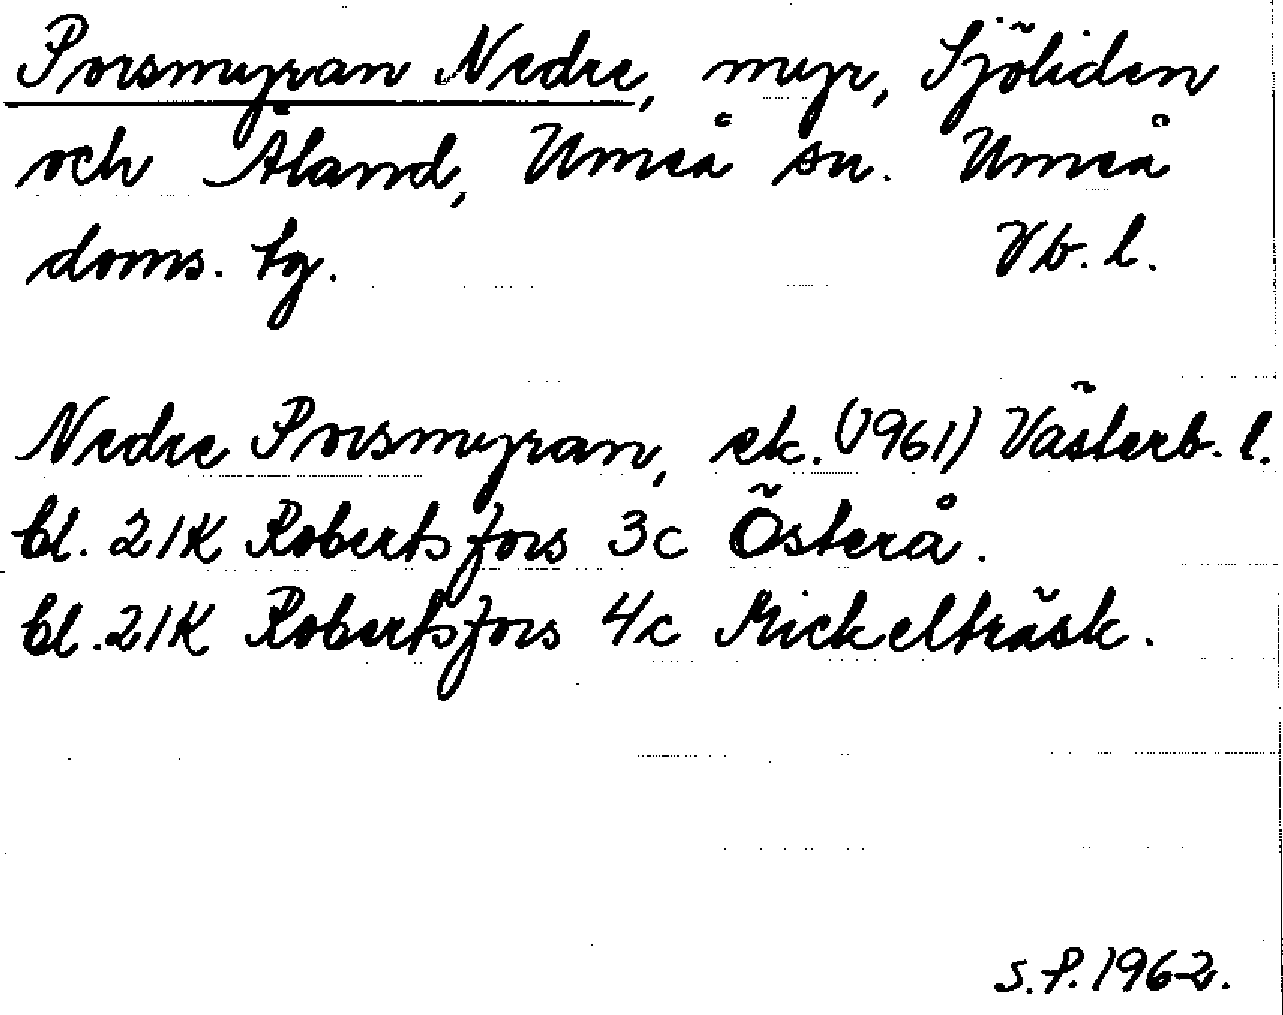 Porsmyran Nedre, myr, Sjöliden
och Åland, Umeå sn. Umeå
doms. tg. Vb. l.
Nedre Porsmyran, ek. (1961) Västerb. l.
bl. 21K Robertsfors 3c Österå.
bl. 21K Robertsfors 4c Mickelträsk.
S.P. 1962.